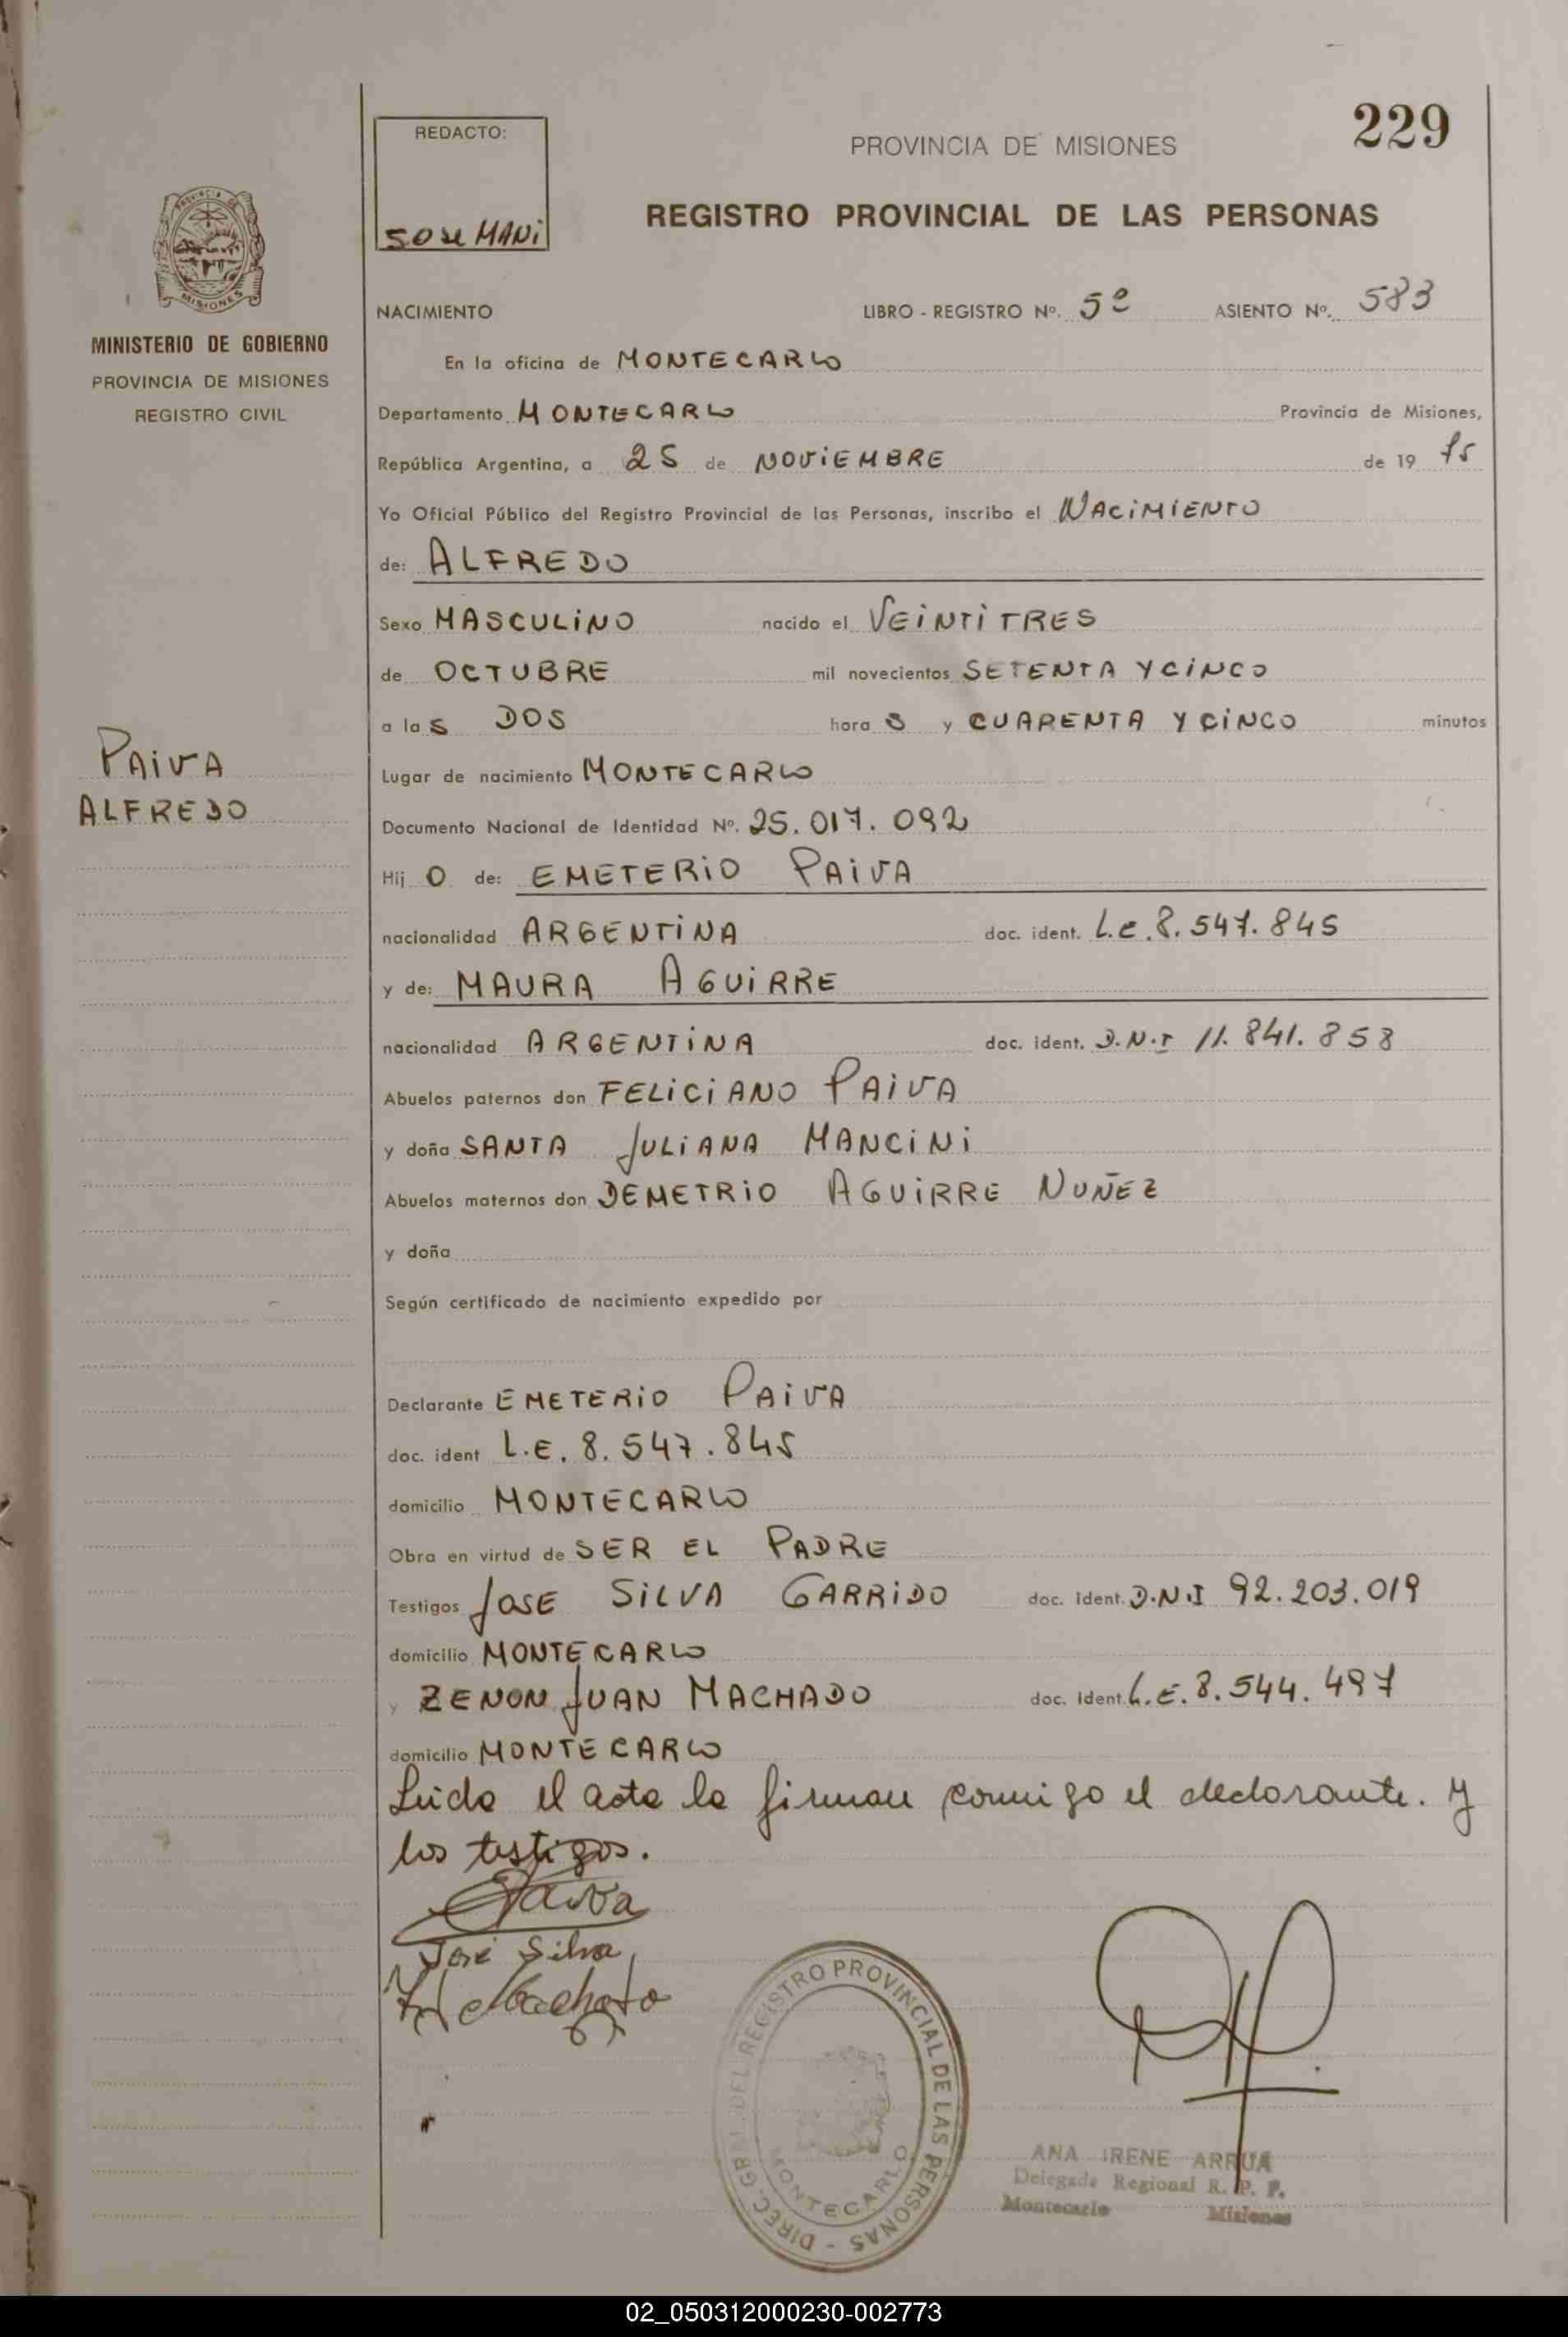 229
REDACTO:
PROVINCIA DE MISIONES
REGISTRO PROVINCIAL DE LAS PERSONAS
MINISTERIO DE GOBIERNO
PROVINCIA DE MISIONES
REGISTRO CIVIL
PAIVA
ALFREDO
NACIMIENTO LIBRO - REGISTRO Nº. 5º ASIENTO Nº. 583
En la oficina de MONTECARLO
Departamento MONTECARLO Provincia de Misiones,
República Argentina, a 25 de NOVIEMBRE de 19 75
Yo Oficial Público del Registro Provincial de las Personas, inscribo el NACIMIENTO
de: ALFREDO
Sexo MASCULINO nacido el VEINTITRES
de OCTUBRE mil novecientos SETENTA Y CINCO
a las DOS horas y CUARENTA Y CINCO minutos
Lugar de nacimiento MONTECARLO
Documento Nacional de Identidad Nº. 25.017.092
Hij O de: EMETERIO PAIVA
nacionalidad ARGENTINA doc. ident. L.E. 8.547.845
y de: MAURA AGUIRRE
nacionalidad ARGENTINA doc. ident. D.N.I 11.841.858
Abuelos paternos don FELICIANO PAIVA
y doña SANTA JULIANA MANCINI
Abuelos maternos don DEMETRIO AGUIRRE NUÑEZ
y doña
Según certificado de nacimiento expedido por
Declarante EMETERIO PAIVA
doc. ident L.E. 8.547.845
domicilio MONTECARLO
Obra en virtud de SER EL PADRE
Testigos JOSE SILVA GARRIDO doc. ident. D.N.I 92.203.019
domicilio MONTECARLO
y ZENON JUAN MACHADO doc. ident. L.E. 8.544.497
domicilio MONTECARLO
Leida el acta la firman conmigo el declarante. y
los testigos.
Paiva
José Silva
Machado
DIREC. GRAL. DEL REGISTRO PROVINCIAL DE LAS PERSONAS -
MONTECARLO
ANA IRENE ARRUA
Delegada Regional R. P. P.
Montecarlo Misiones
02_050312000230-002773